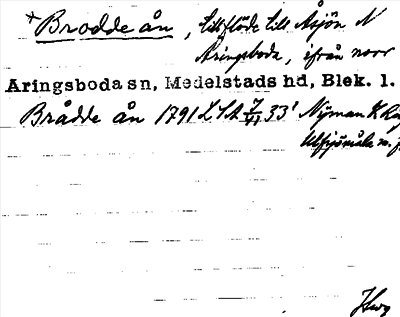 Brodde ån, tillflöde till Åsjön N
Åringsboda, ifrån norr
Åringsboda sn, Medelstads hd, Blek. l.
Brådde ån 1791 LSA 7/VI 33' Nyman K